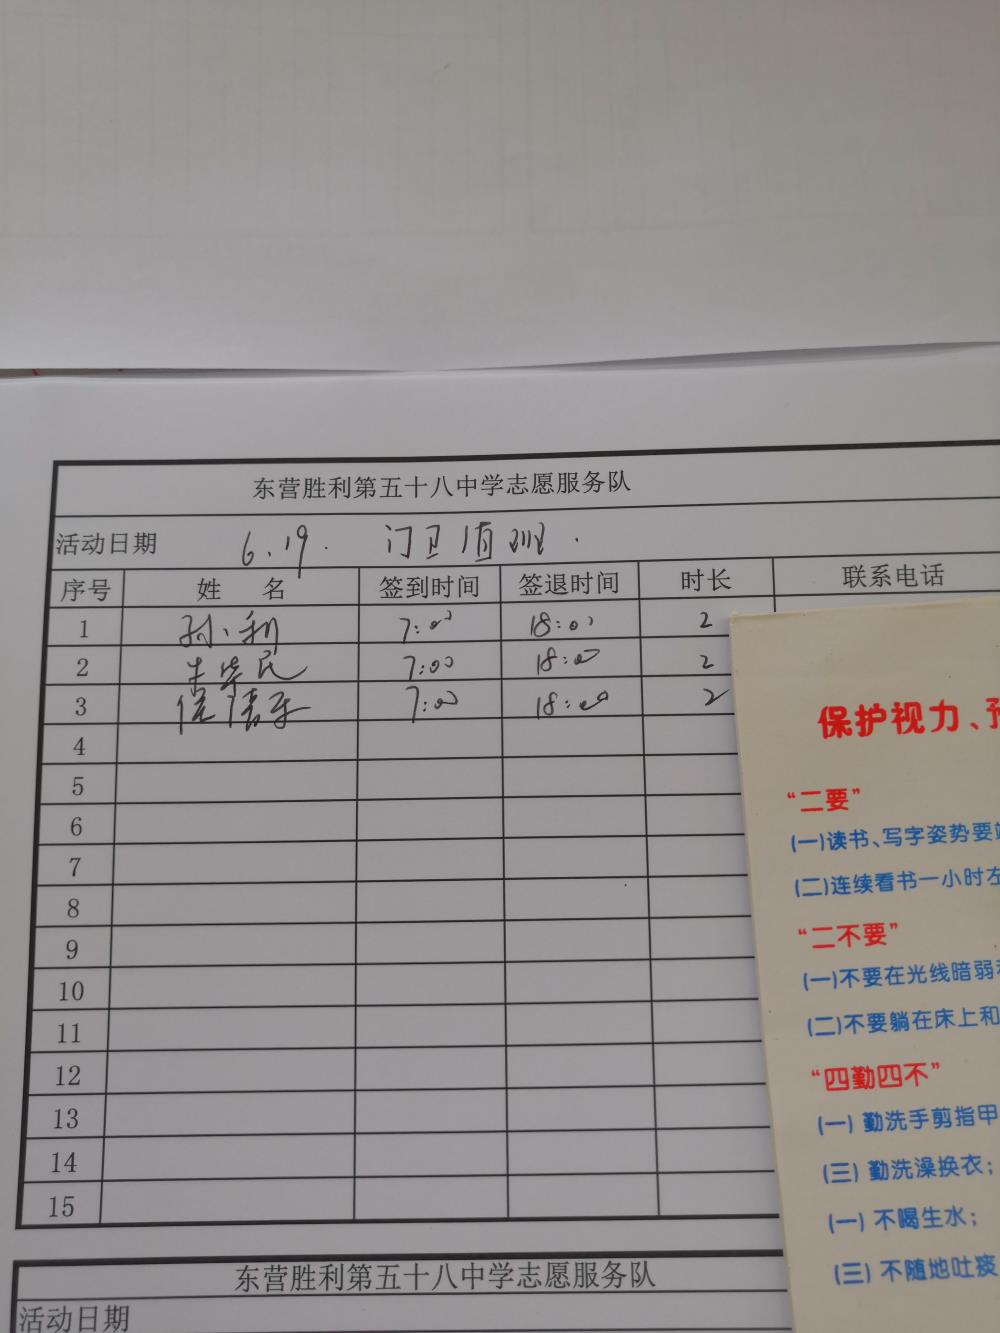 东营胜利第五十八中学志愿服务队
活动日期 6.19. 门卫值班.
序号 姓 名 签到时间 签退时间 时长 联系电话
1 孙利 7:00 18:00 2
2 7:00 18:00 2
3 7:00 18:00 2
4
5
6
7
8
9
10
11
12
13
14
15
东营胜利第五十八中学志愿服务队
活动日期
保护视力、预
“二要”
(一)读书、写字姿势要端
(二)连续看书一小时左
“二不要”
(一)不要在光线暗弱和
(二)不要躺在床上和
“四勤四不”
(一) 勤洗手剪指甲
(三) 勤洗澡换衣；
(一) 不喝生水；
(三) 不随地吐痰